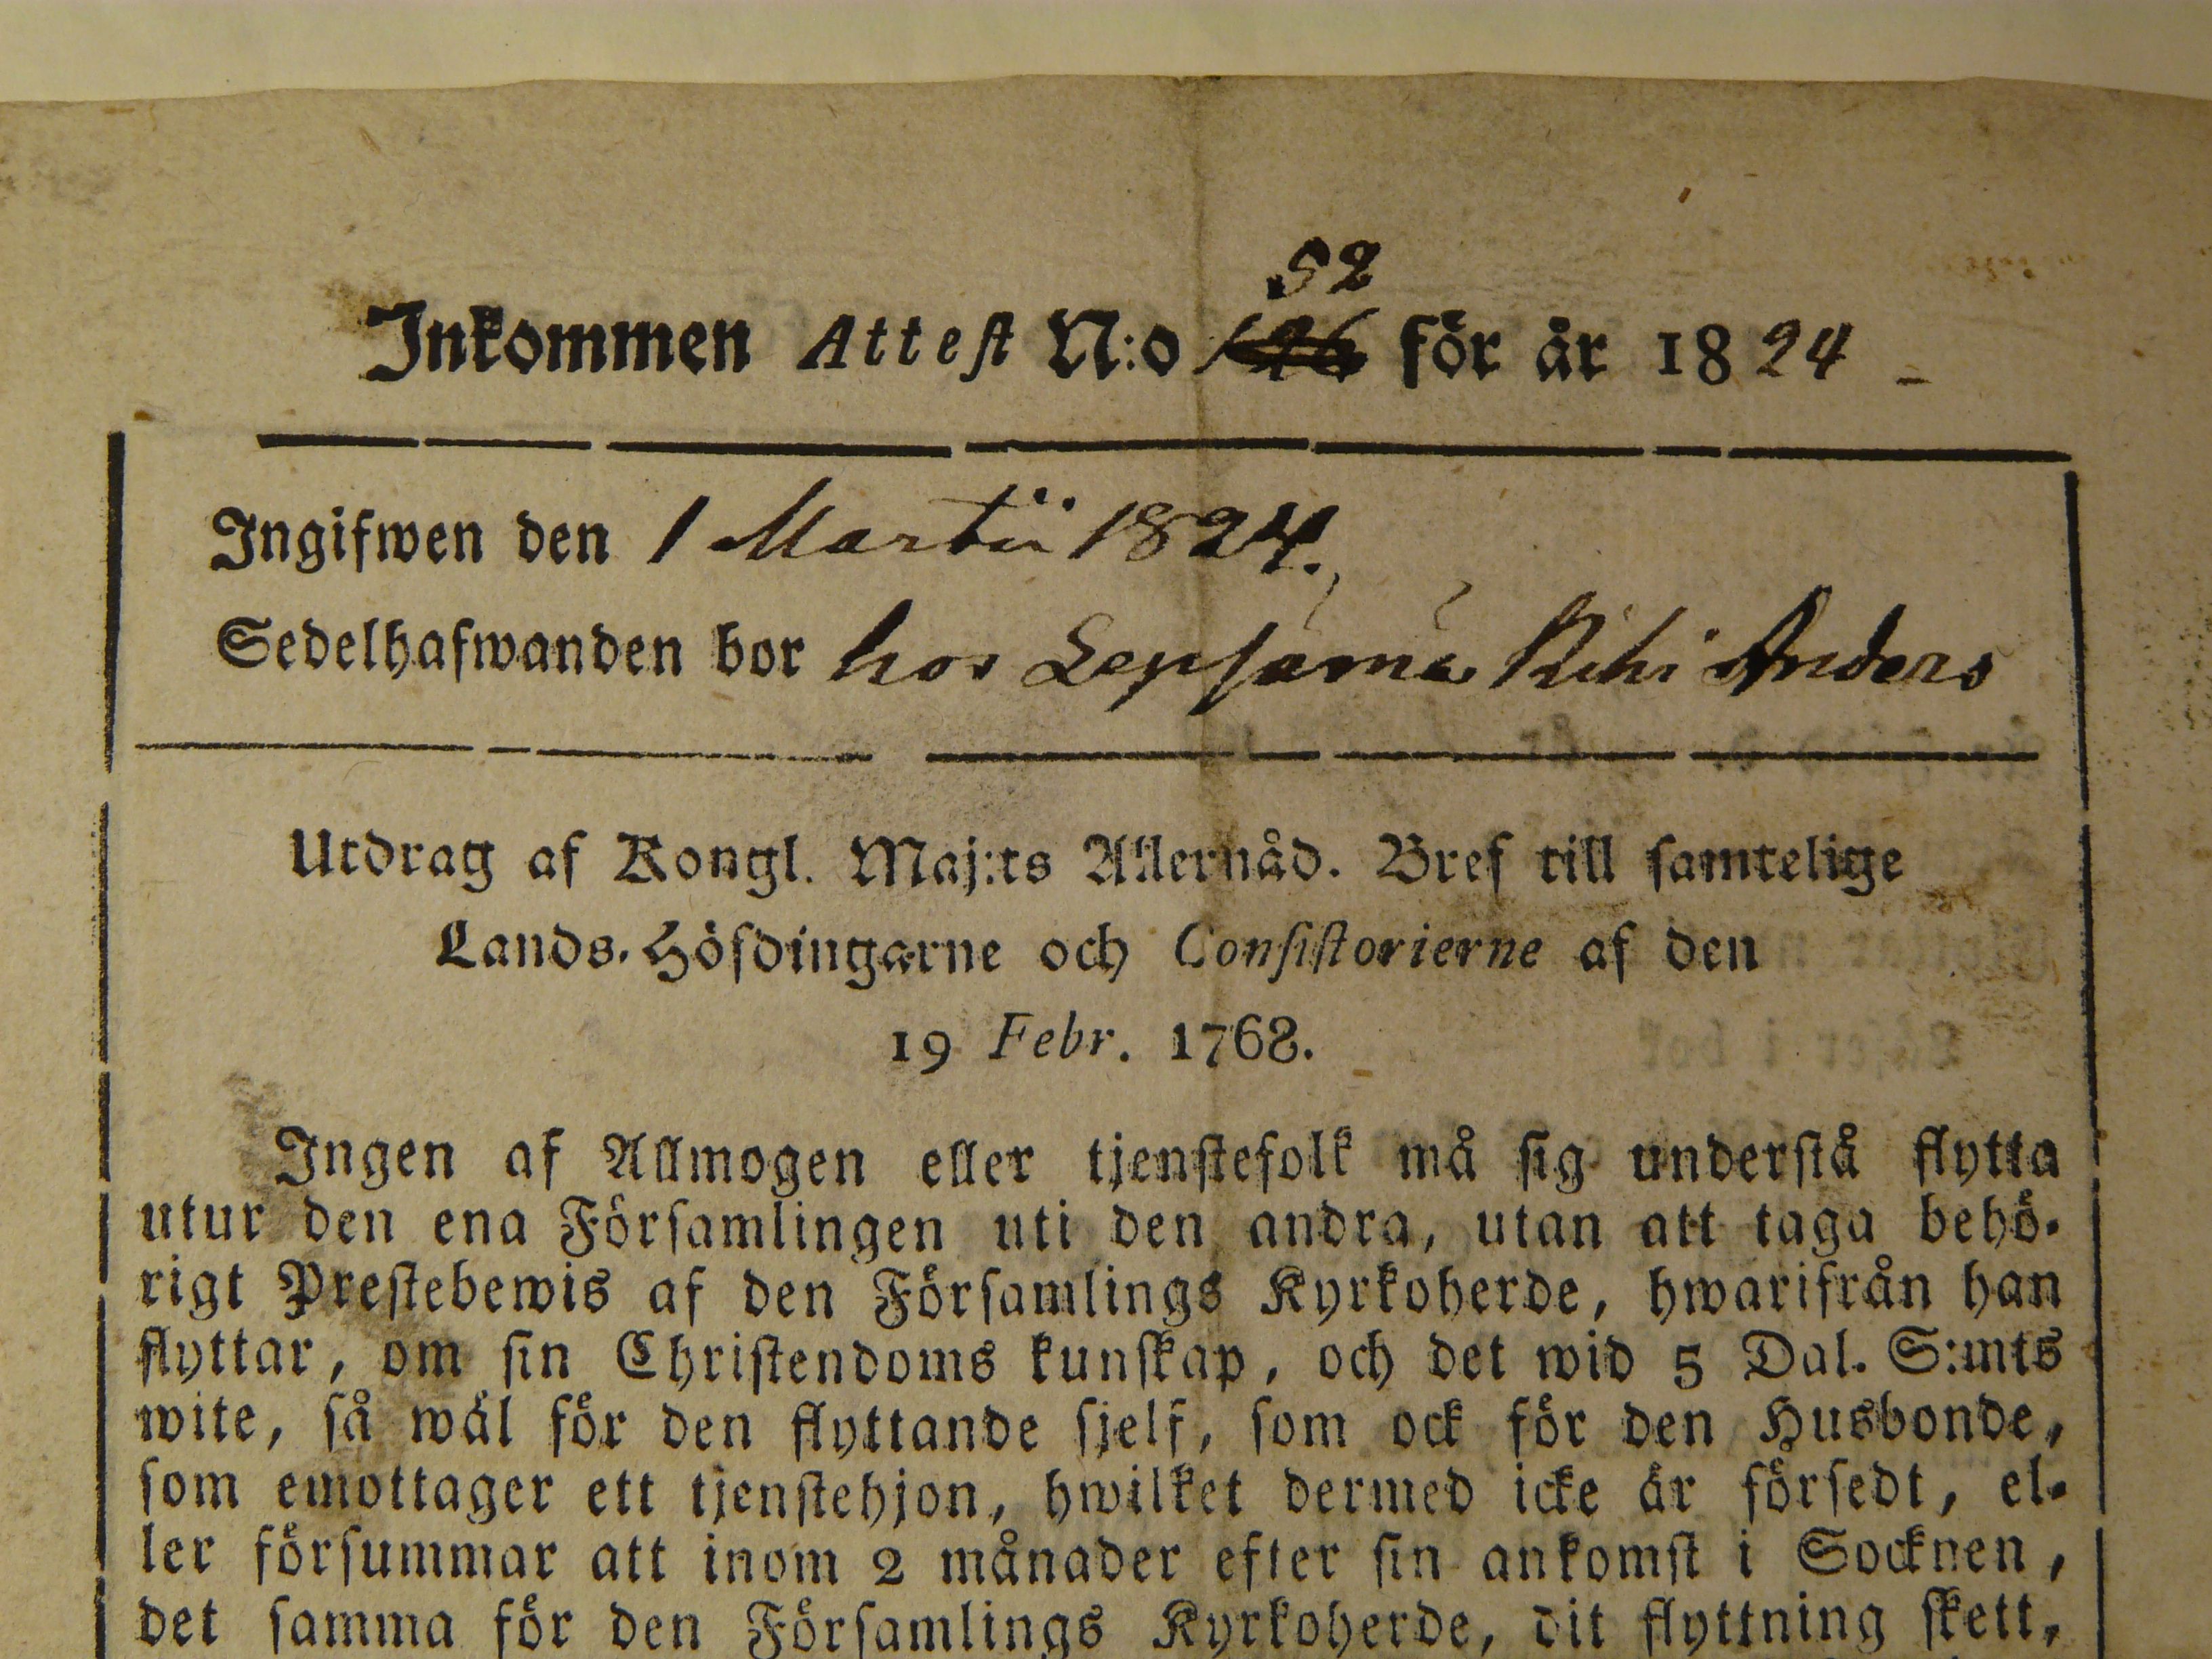 52
Inkommen Attest N:o 126 för år 1824 -
Ingifwen den 1 Martii 1824.
Sedelhafwanden bor hos Lepsämä Rihi Anders
Utdrag af Kongl. Maj:ts Allernåd. Bref till samtelige
Lands-Höfdingarne och Consistorierne af den
19 Febr. 1768.
Ingen af Allmogen eller tjenstefolk må sig understå flytta
utur den ena Församlingen uti den andra, utan att taga behö-
rigt Prestebewis af den Församlings Kyrkoherde, hwarifrån han
flyttar, om sin Christendoms kunskap, och det wid 5 Dal. S:mts
wite, så wäl för den flyttande sjelf, som ock för den Husbonde,
som emottager ett tjenstehjon, hwilket dermed icke är försedt, el-
ler försummar att inom 2 månader efter sin ankomst i Socknen,
det samma för den Församlings Kyrkoherde, dit flyttning skett,